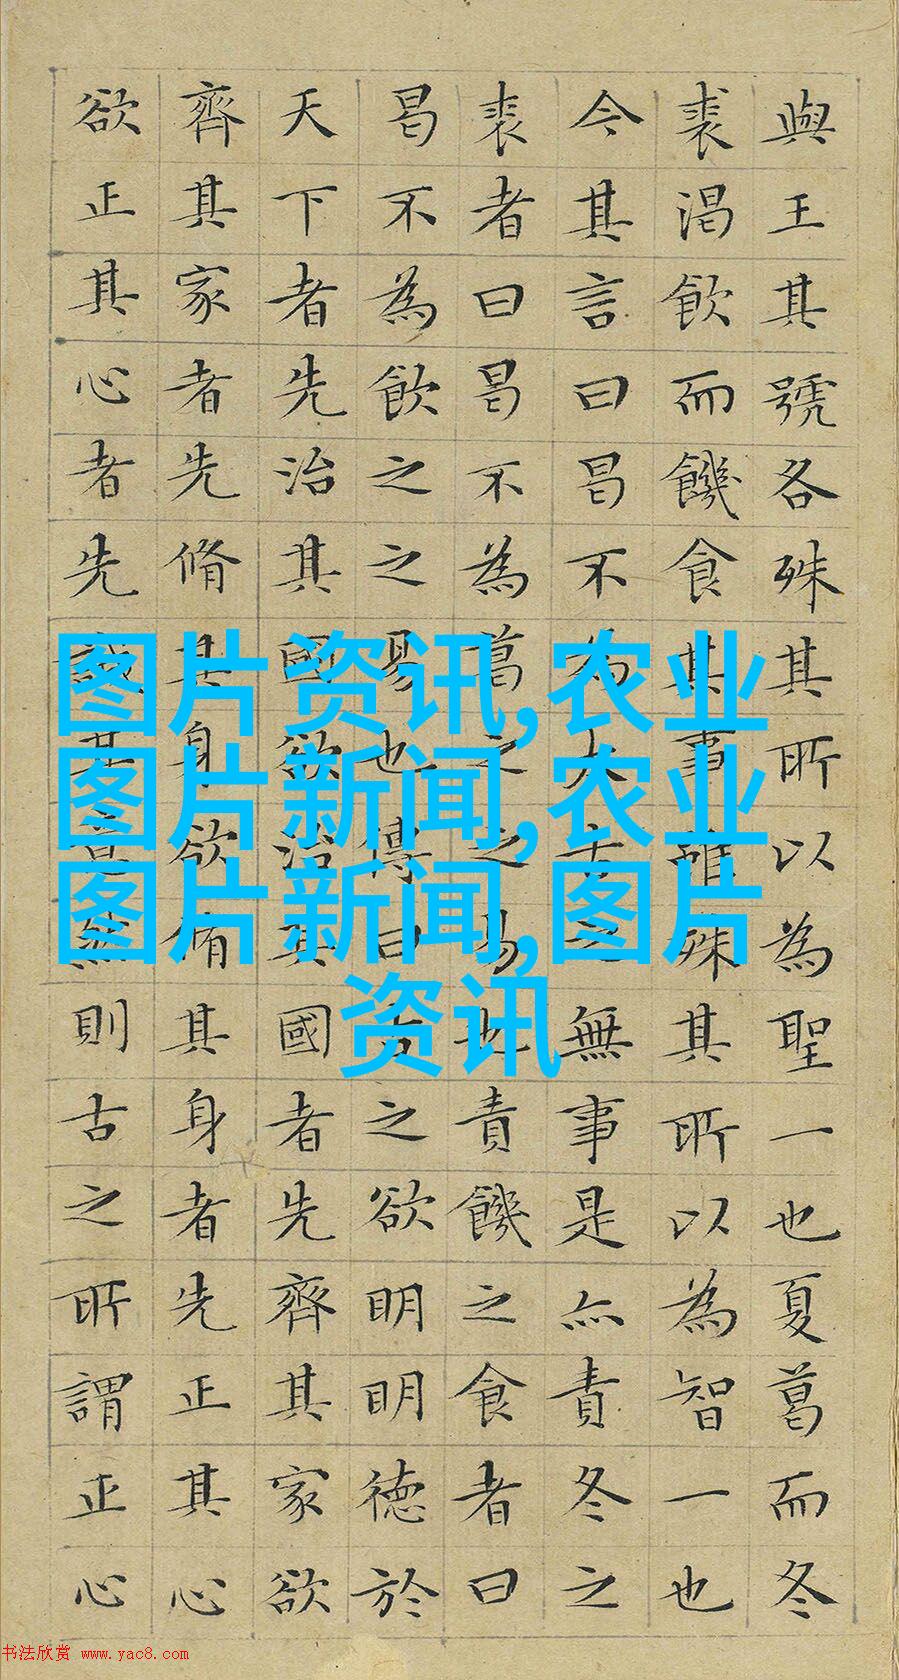 與王其號各殊其所以為聖一也夏葛而冬
裘渴飲而饑食其事雖殊其所以為智一也
今其言曰曷不為太古之無事是亦責冬之
裘者曰曷不為葛之之易也責饑之食者曰
曷不為飲之之易也傳曰古之欲明明德於
天下者先治其國欲治其國者先齊其家欲
齊其家者先脩其身欲脩其身者先正其心
欲正其心者先誠其意然則古之所謂正心
图片资讯,农业
图片新闻,农业
图片新闻,图片
资讯
书法欣赏 www.yac8.com